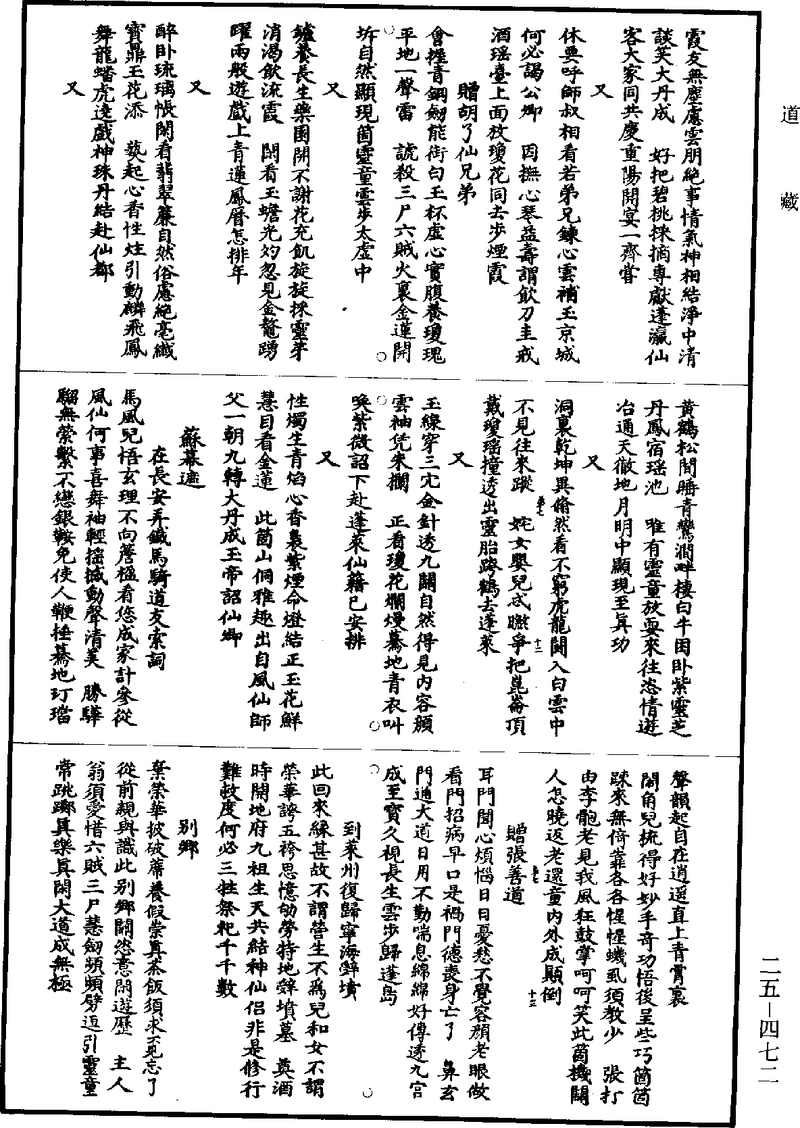 道藏
霞友無塵慮雲朋絕事情氣神相結淨中清
談笑大丹成　好把碧桃採摘專獻蓬瀛仙
客大家同共慶重陽開宴一齊嘗
又
休要呼師叔相看若弟兄鍊心雲補玉京城
何必謁公卿　因撫心琴益壽謂飲刀圭戒
酒瑤臺上面放瓊花同去步煙霞
贈胡了仙兄弟
會握青鋼劒能銜白玉杯虛心實腹養瓊瑰
平地一聲雷　諕殺三尸六賊火裏金蓮開
坼自然顯現箇靈童雲步太虛中
又
爐養長生藥園開不謝花充飢旋旋採靈芽
消渴飲流霞　閑看玉蟾光灼忽見金鼇踴
躍兩般遊戲上青蓮鳳曆怎排年
又
醉卧琉璃帳閑看翡翠簾自然俗慮絕毫纖
寶鼎玉花添　爇起心香性炷引動麟飛鳳
舞龍蟠虎遶戲神珠丹結赴仙都
又
黃鶴松間睡青鸞澗畔棲白牛困卧紫靈芝
丹鳳宿瑤池　唯有靈童放耍來往恣情遊
冶通天徹地月明中顯現至真功
又
洞裏乾坤異翛然看不窮虎龍鬭入白雲中
不見往來蹤　姹女嬰兒忒瞧爭把崑崙頂
戴瓊瑤撞透出靈胎跨鶴去蓬萊
又
玉線穿三宂金針透九關自然得見內容顏
雲袖凭朱攔　正看瓊花爛熳驀地青衣叫
喚紫微詔下赴蓬萊仙籍已安排
又
性燭生青焰心香裊紫煙命燈結正玉花鮮
慧目看金蓮　此箇山侗雅趣出自風仙師
父一朝九轉大丹成玉帝詔仙卿
蘇幕遮
在長安弄鐵馬騎道友索詞
馬風兒悟玄理不向簷楹看您成家計參從
風仙何事喜舞袖輕搖撼動聲清美　勝驊
騮無縈繫不戀銀鞍免使人鞭捶驀地玎璫
聲韻起自在逍遥直上青霄裏
鬧角兒梳得好妙手奇功悟後呈些巧箇箇
踈來無倚靠各各惺惺蟣虱須教少　張打
由李𩨨老見我風狂鼓掌呵呵笑此箇機關
人怎曉返老還童內外成顛倒
贈張善道
耳門聞心煩惱日日憂愁不覺容顏老眼做
看門招病早口是禍門德喪身亡了　鼻玄
門通大道日用不勤喘息綿綿好傳透九宫
成至寶久視長生雲步歸蓬島
到萊州復歸寧海辤墳
此回來緣甚故不謂營生不為兒和女不謂
榮華誇五袴思憶劬勞特地辤墳墓　奠酒
時開地府九祖生天共結神仙侶非是修行
難救度何必三牲祭祀千千數
別鄉
棄榮華披破蓆養假崇真茶飯須求覓忘了
從前親與識此別鄉關恣意閑遊歷　主人
翁須愛惜六賊三尸慧劒頻頻劈迤引靈童
常跳躑真樂真閑大道成無極
二五—四七二